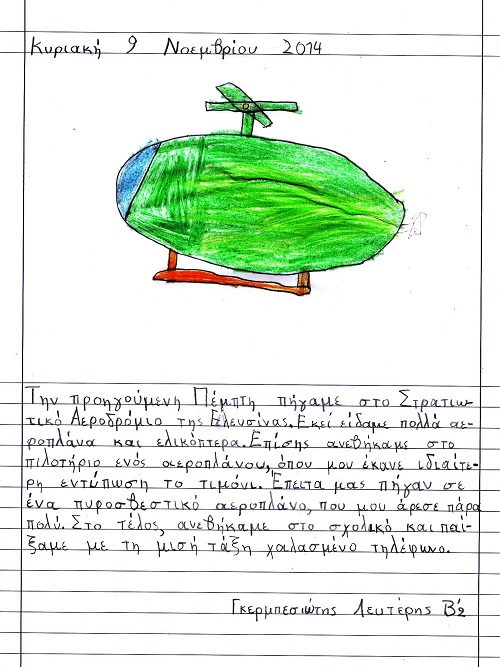 Κυριακή 9 Νοεμβρίου 2014
Την προηγούμενη Πέμπτη πήγαμε στο Στρατιω-
τικό Αεροδρόμιο της Ελευσίνας. Εκεί είδαμε πολλά αε-
ροπλάνα και ελικόπτερα. Επίσης ανεβήκαμε στο
πιλοτήριο ενός αεροπλάνου, όπου μου έκανε ιδιαίτε-
ρη εντύπωση το τιμόνι. Έπειτα μας πήγαν σε
ένα πυροσβεστικό αεροπλάνο, που μου άρεσε πάρα
πολύ. Στο τέλος, ανεβήκαμε στο σχολικό και παί-
ξαμε με τη μισή τάξη χαλασμένο τηλέφωνο.
Γκερμπεσιώτης Λευτέρης Β'2